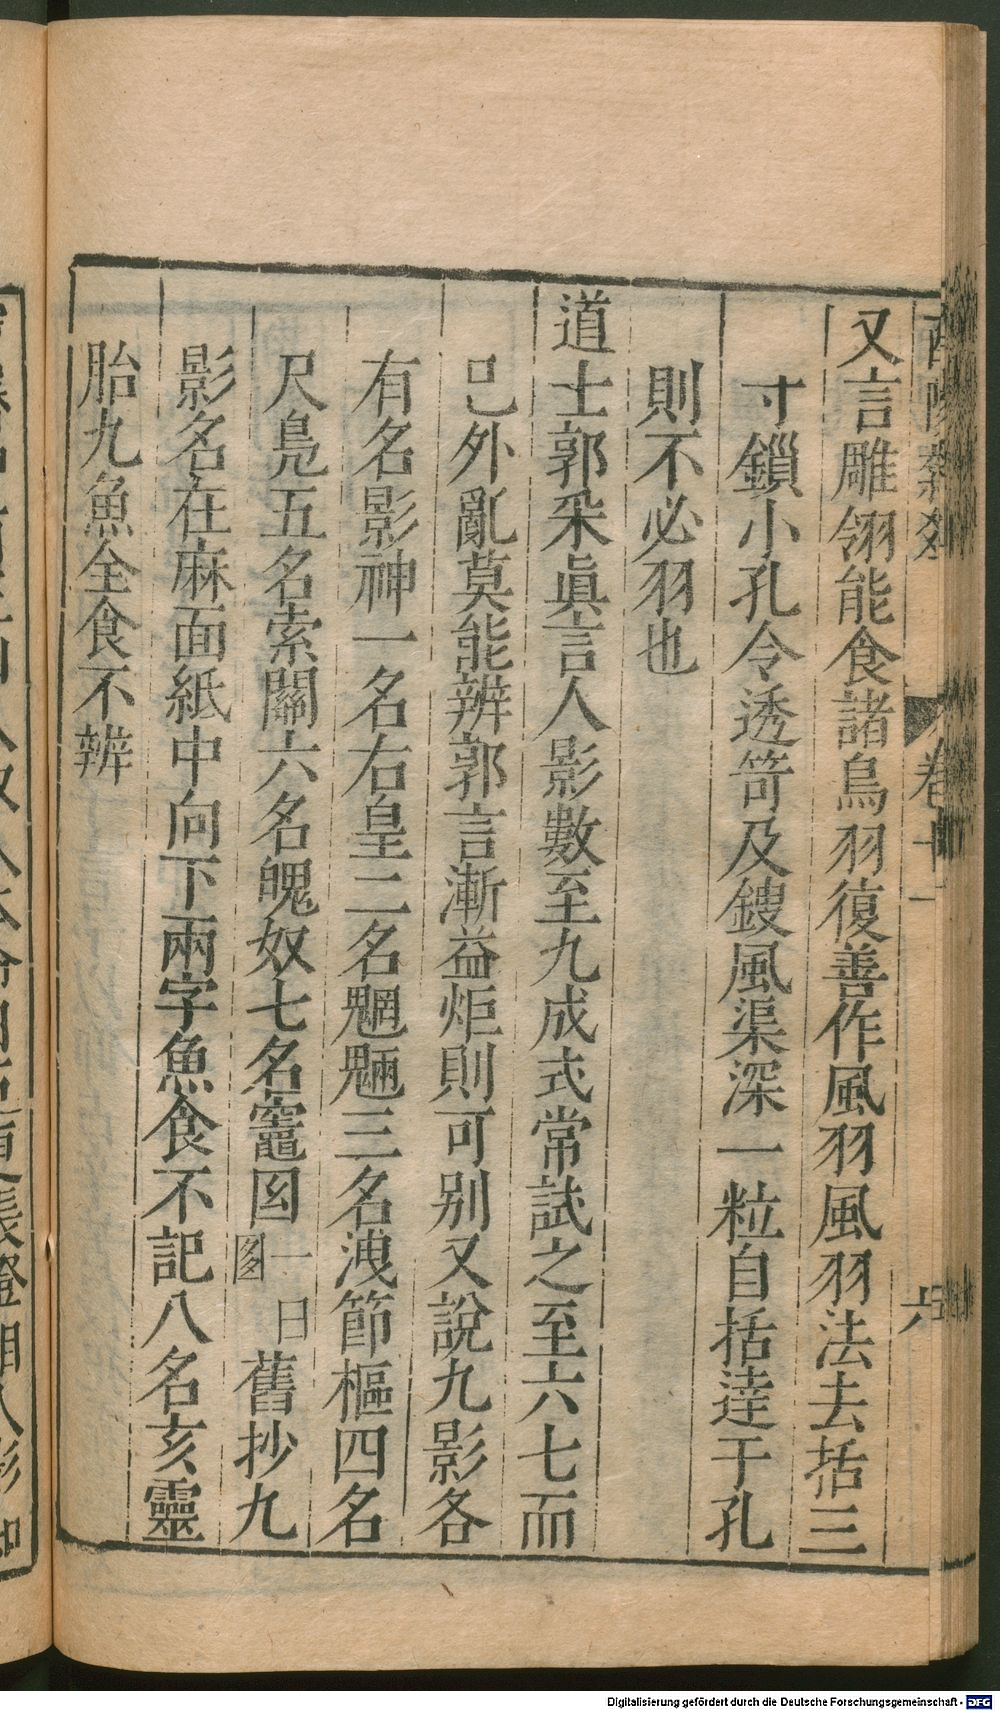 又言雕翎能食諸鳥羽復善作風羽風羽法去括三
寸鎻小孔令透笴及鍐風渠深一粒自括逹于孔
則不必羽也
道士郭采眞言人影數至九成式常試之至六七而
已外亂莫能辨郭言漸益炬則可别又說九影各
有名影神一名右皇二名魍魎三名洩節樞四名
尺鳧五名索關六名魄奴七名竈囦一曰舊抄九
影名在麻面紙中向下兩字魚食不記八名亥靈
胎九魚全食不辨
卷十一
六
Digitalisierung gefördert durch die Deutsche Forschungsgemeinschaft - DFG